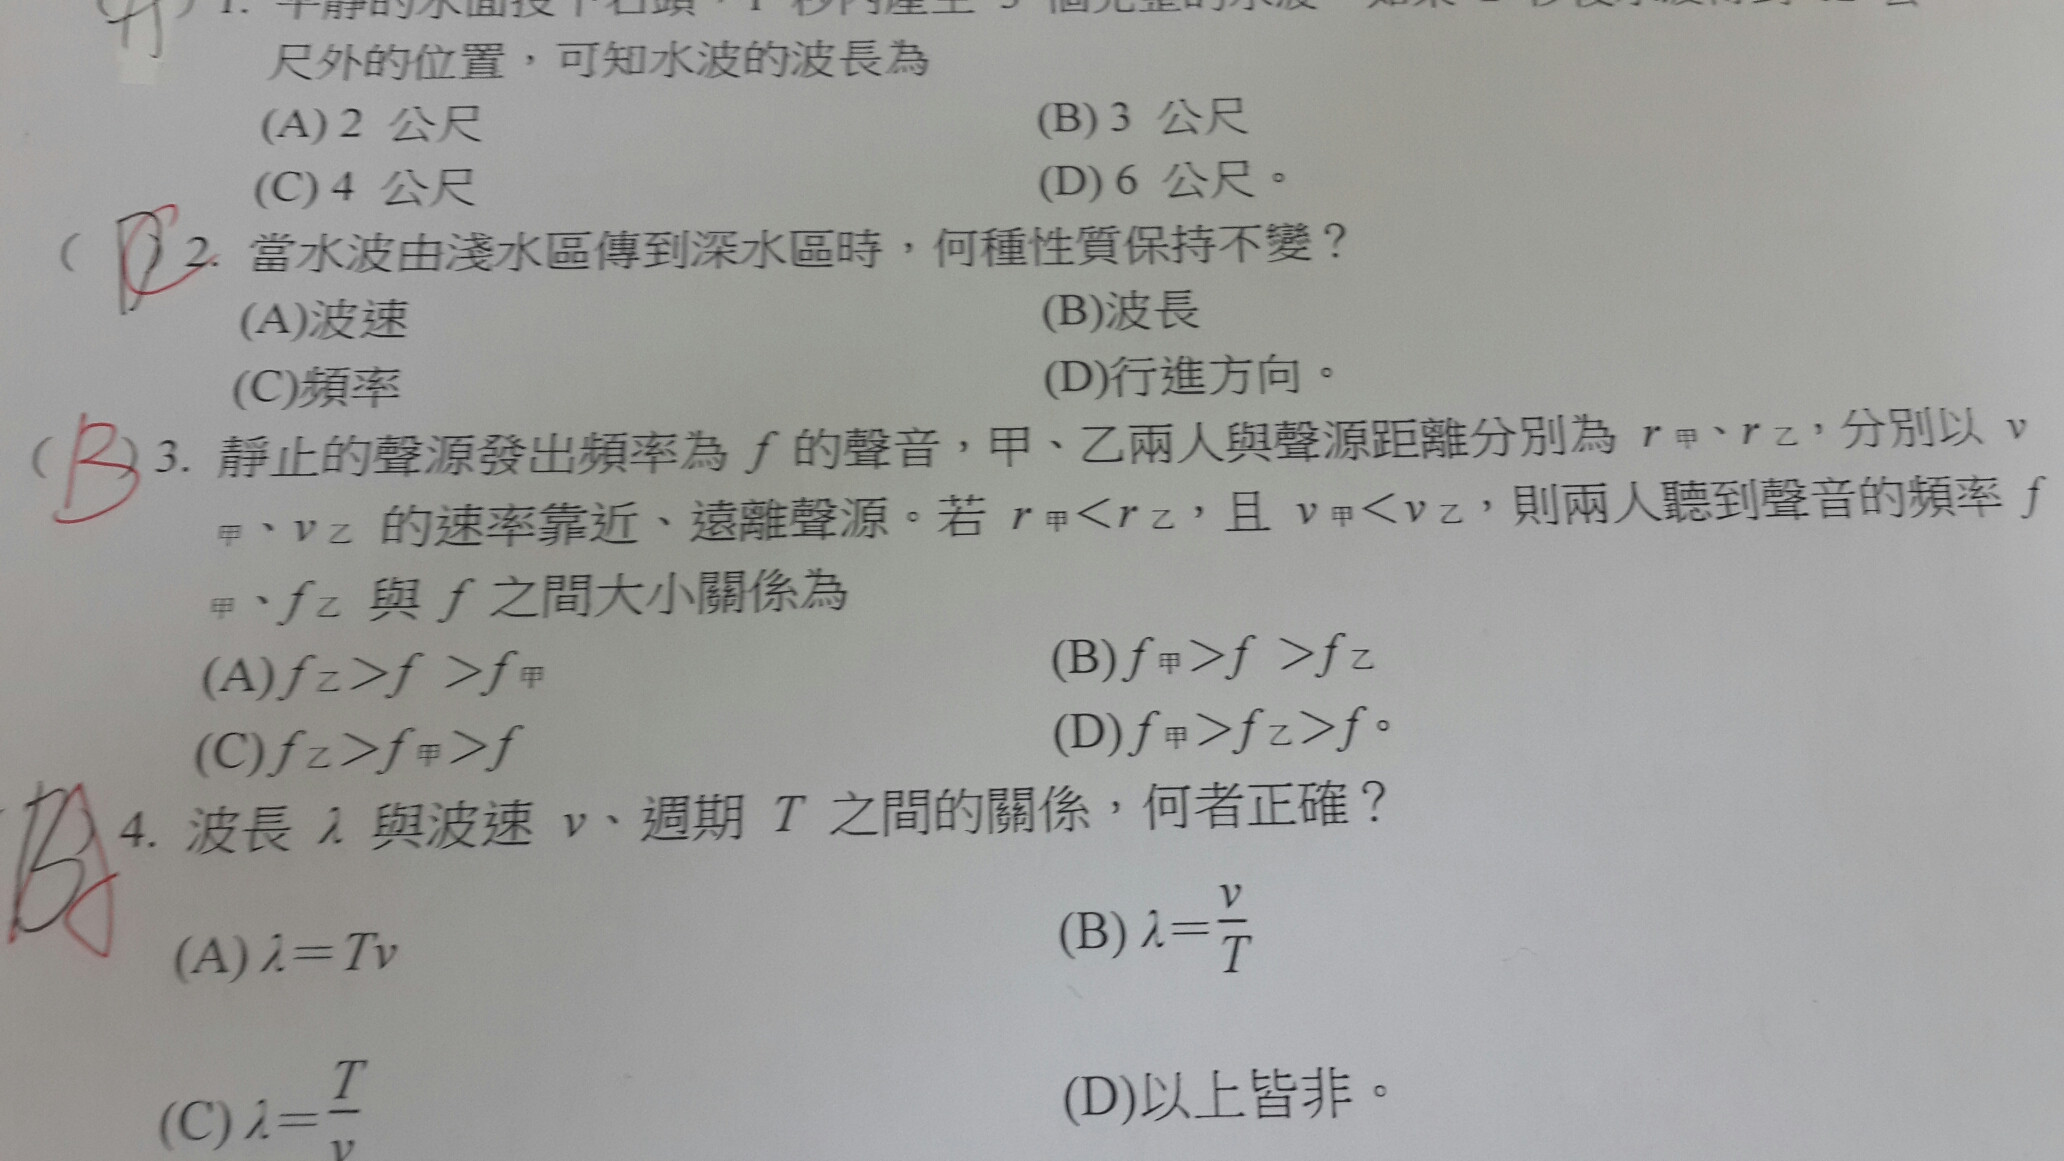 1. 平靜的水面投下石頭，1 秒內產生 3 個完整的水波，如果 2 秒後水波傳到 12 公
尺外的位置，可知水波的波長為
(A) 2 公尺 (B) 3 公尺
(C) 4 公尺 (D) 6 公尺。
( C ) 2. 當水波由淺水區傳到深水區時，何種性質保持不變？
(A)波速 (B)波長
(C)頻率 (D)行進方向。
( B ) 3. 靜止的聲源發出頻率為 f 的聲音，甲、乙兩人與聲源距離分別為 r甲、r乙，分別以 v
甲、v乙 的速率靠近、遠離聲源。若 r甲＜r乙，且 v甲＜v乙，則兩人聽到聲音的頻率 f
甲、f乙 與 f 之間大小關係為
(A) f乙＞f ＞f甲 (B) f甲＞f ＞f乙
(C) f乙＞f甲＞f (D) f甲＞f乙＞f。
4. 波長 λ 與波速 v、週期 T 之間的關係，何者正確？
(A) λ＝Tv (B) λ＝v/T
(C) λ＝T/v (D)以上皆非。